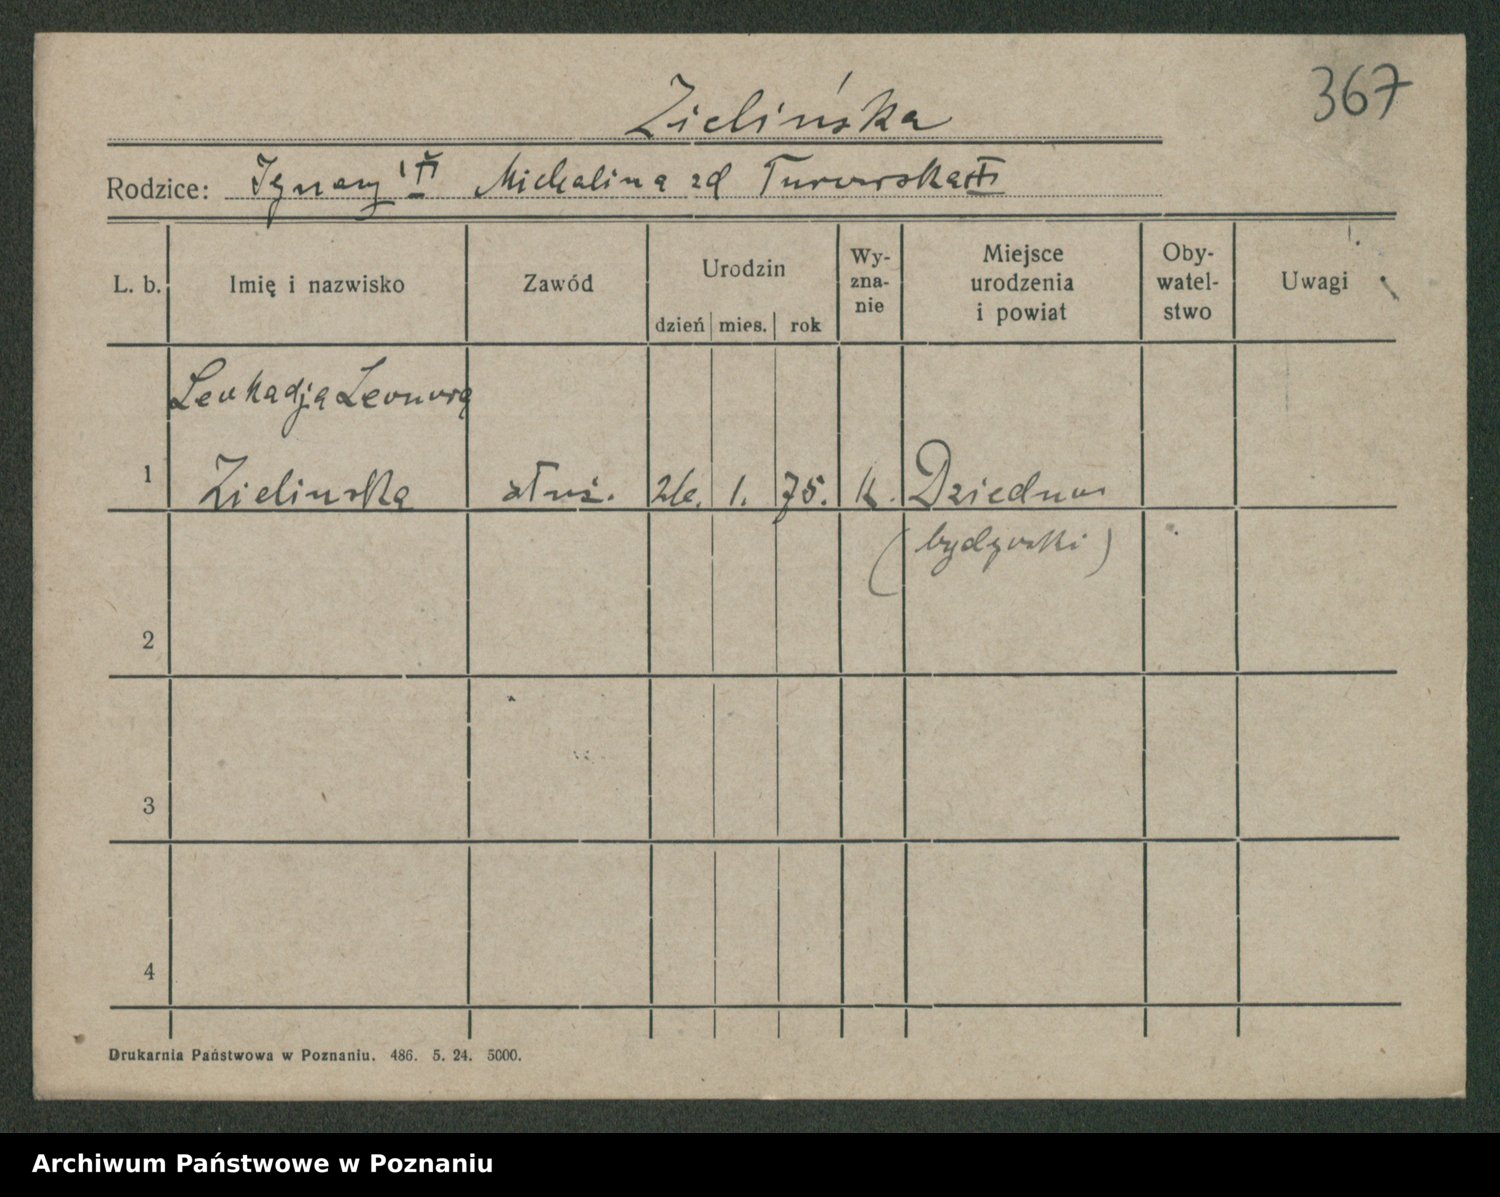 367
Zielińska
Rodzice: Ignacy Michalina zd Turowska
L. b. Imię i nazwisko Zawód Urodzin dzień mies. rok Wy-zna-nie Miejsce urodzenia i powiat Oby-watel-stwo Uwagi
Leokadja Leonora
1 Zielinska służ. 26. 1. 75. k. Dziedno
(bydgoski)
2
3
4
Drukarnia Państwowa w Poznaniu. 486. 5. 24. 5000.
Archiwum Państwowe w Poznaniu